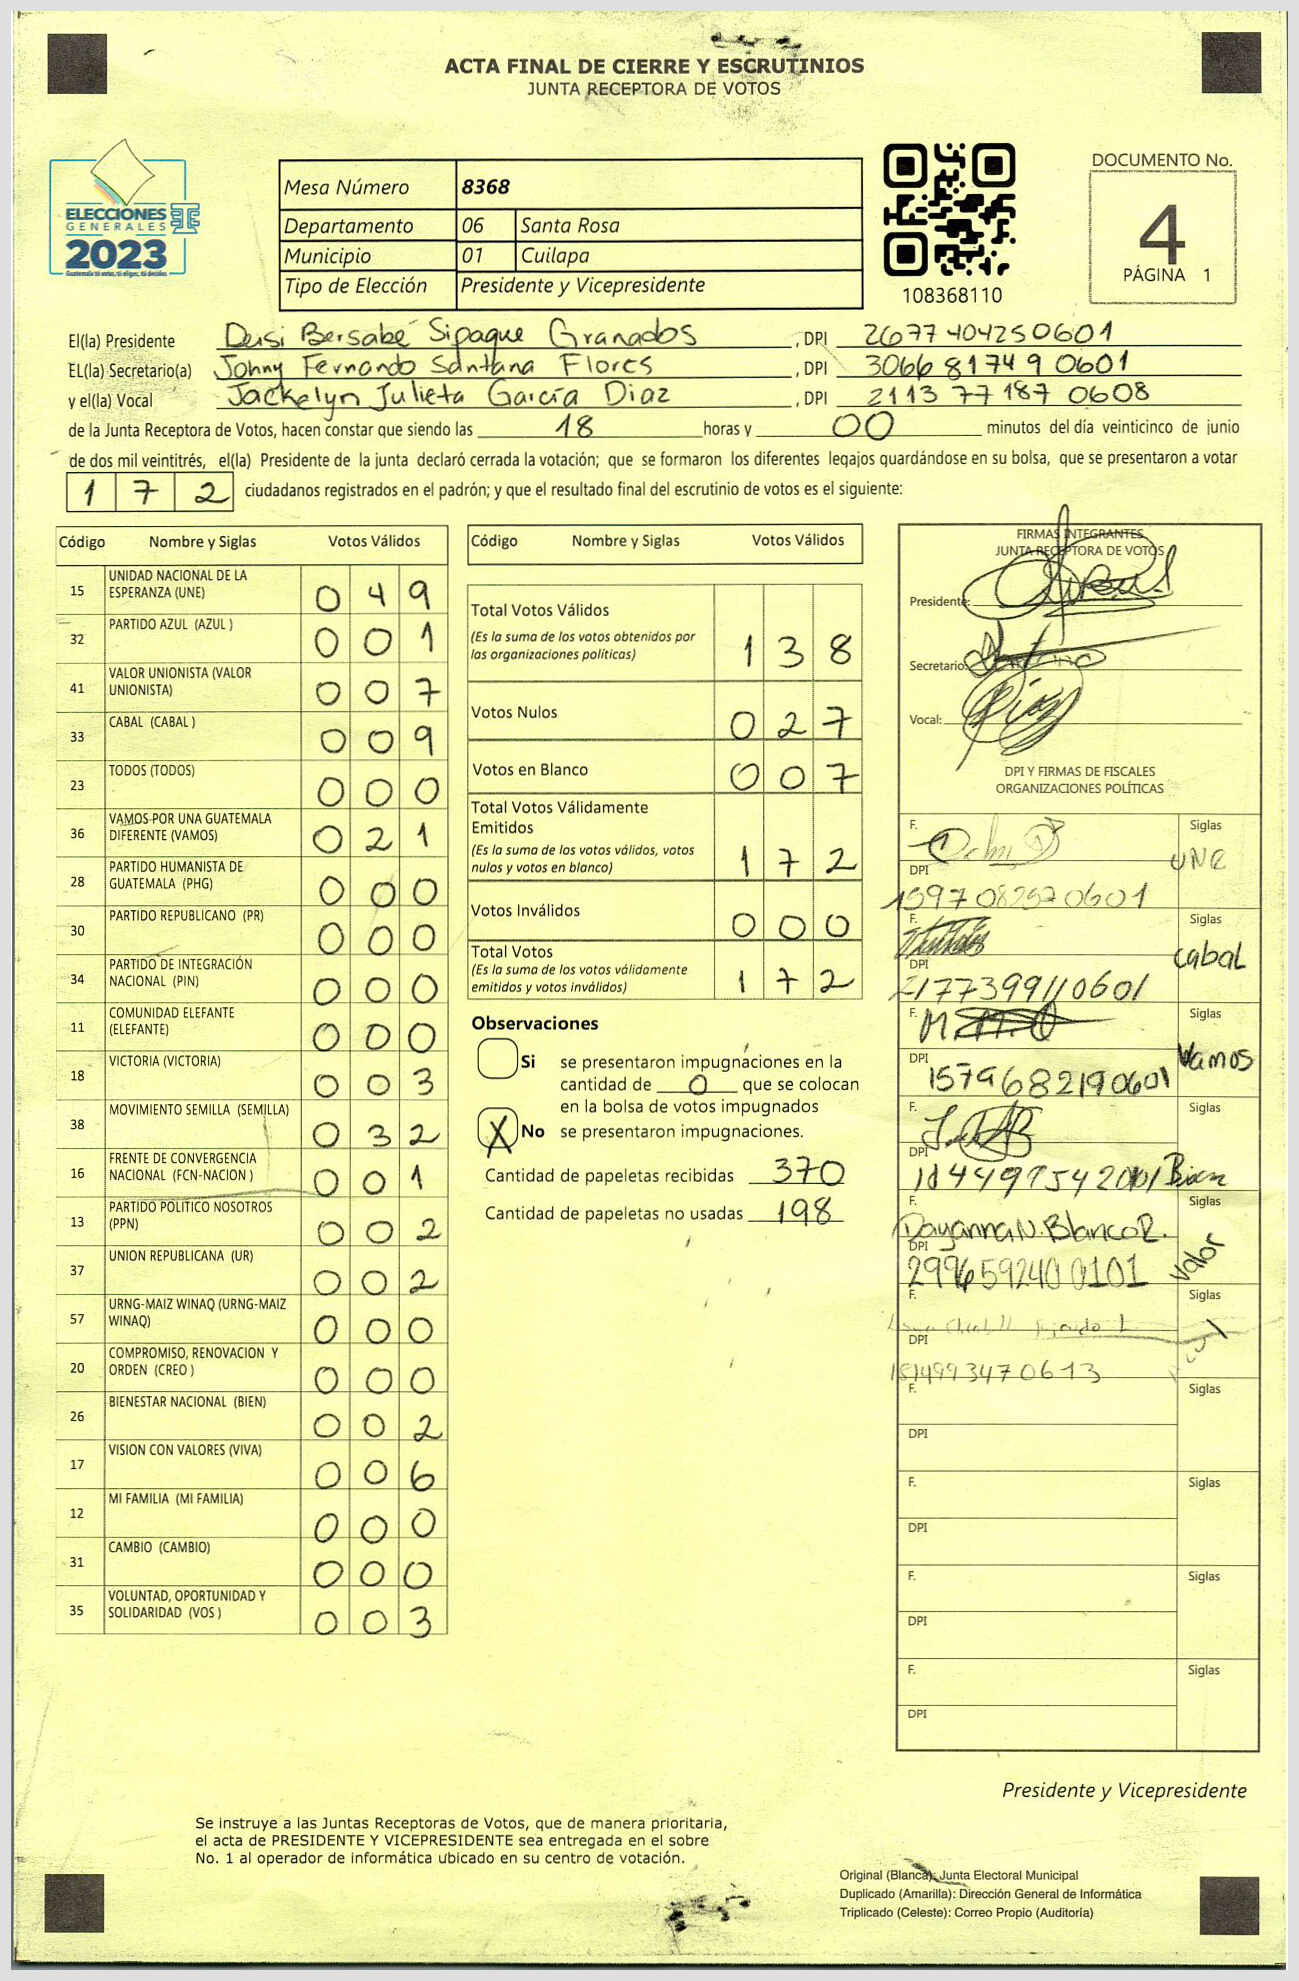 ACTA FINAL DE CIERRE Y ESCRUTINIOS
JUNTA RECEPTORA DE VOTOS
ELECCIONES
GENERALES
2023
Guatemala tú votas, tú eliges, tú decides
Mesa Número 8368
Departamento 06 Santa Rosa
Municipio 01 Cuilapa
Tipo de Elección Presidente y Vicepresidente
108368110
DOCUMENTO No.
4
PÁGINA 1
El(la) Presidente Deisi Bersabé Sipaque Granados , DPI 2677404250601
EL(la) Secretario(a) Johny Fernando Santana Flores , DPI 3066 81749 0601
y el(la) Vocal Jackelyn Julieta García Diaz , DPI 2113 77187 0608
de la Junta Receptora de Votos, hacen constar que siendo las 18 horas y 00 minutos del día veinticinco de junio
de dos mil veintitrés, el(la) Presidente de la junta declaró cerrada la votación; que se formaron los diferentes legajos guardándose en su bolsa, que se presentaron a votar
1 7 2 ciudadanos registrados en el padrón; y que el resultado final del escrutinio de votos es el siguiente:
Código Nombre y Siglas Votos Válidos
15 UNIDAD NACIONAL DE LA ESPERANZA (UNE) 0 4 9
32 PARTIDO AZUL (AZUL ) 0 0 1
41 VALOR UNIONISTA (VALOR UNIONISTA) 0 0 7
33 CABAL (CABAL ) 0 0 9
23 TODOS (TODOS) 0 0 0
36 VAMOS POR UNA GUATEMALA DIFERENTE (VAMOS) 0 2 1
28 PARTIDO HUMANISTA DE GUATEMALA (PHG) 0 0 0
30 PARTIDO REPUBLICANO (PR) 0 0 0
34 PARTIDO DE INTEGRACIÓN NACIONAL (PIN) 0 0 0
11 COMUNIDAD ELEFANTE (ELEFANTE) 0 0 0
18 VICTORIA (VICTORIA) 0 0 3
38 MOVIMIENTO SEMILLA (SEMILLA) 0 3 2
16 FRENTE DE CONVERGENCIA NACIONAL (FCN-NACION ) 0 0 1
13 PARTIDO POLITICO NOSOTROS (PPN) 0 0 2
37 UNION REPUBLICANA (UR) 0 0 2
57 URNG-MAIZ WINAQ (URNG-MAIZ WINAQ) 0 0 0
20 COMPROMISO, RENOVACION Y ORDEN (CREO ) 0 0 0
26 BIENESTAR NACIONAL (BIEN) 0 0 2
17 VISION CON VALORES (VIVA) 0 0 6
12 MI FAMILIA (MI FAMILIA) 0 0 0
31 CAMBIO (CAMBIO) 0 0 0
35 VOLUNTAD, OPORTUNIDAD Y SOLIDARIDAD (VOS ) 0 0 3
Código Nombre y Siglas Votos Válidos
Total Votos Válidos 1 3 8
(Es la suma de los votos obtenidos por
las organizaciones políticas)
Votos Nulos 0 2 7
Votos en Blanco 0 0 7
Total Votos Válidamente
Emitidos
(Es la suma de los votos válidos, votos
nulos y votos en blanco) 1 7 2
Votos Inválidos 0 0 0
Total Votos
(Es la suma de los votos válidamente
emitidos y votos inválidos) 1 7 2
Observaciones
Si se presentaron impugnaciones en la
cantidad de 0 que se colocan
en la bolsa de votos impugnados
X No se presentaron impugnaciones.
Cantidad de papeletas recibidas 370
Cantidad de papeletas no usadas 198
FIRMAS INTEGRANTES
JUNTA RECEPTORA DE VOTOS
Presidente:
Secretario:
Vocal:
DPI Y FIRMAS DE FISCALES
ORGANIZACIONES POLÍTICAS
F. Siglas
DPI UNE
F. Siglas
DPI Cabal
177399110601
F. Siglas
DPI Vamos
1579682190601
F. Siglas
DPI Bien
F. Dayanna N. Blanco R. Siglas
DPI Valor
2996592400101
F. Siglas
DPI
F. Siglas
DPI
F. Siglas
DPI
F. Siglas
DPI
F. Siglas
DPI
Presidente y Vicepresidente
Se instruye a las Juntas Receptoras de Votos, que de manera prioritaria,
el acta de PRESIDENTE Y VICEPRESIDENTE sea entregada en el sobre
No. 1 al operador de informática ubicado en su centro de votación.
Original (Blanca): Junta Electoral Municipal
Duplicado (Amarilla): Dirección General de Informática
Triplicado (Celeste): Correo Propio (Auditoría)